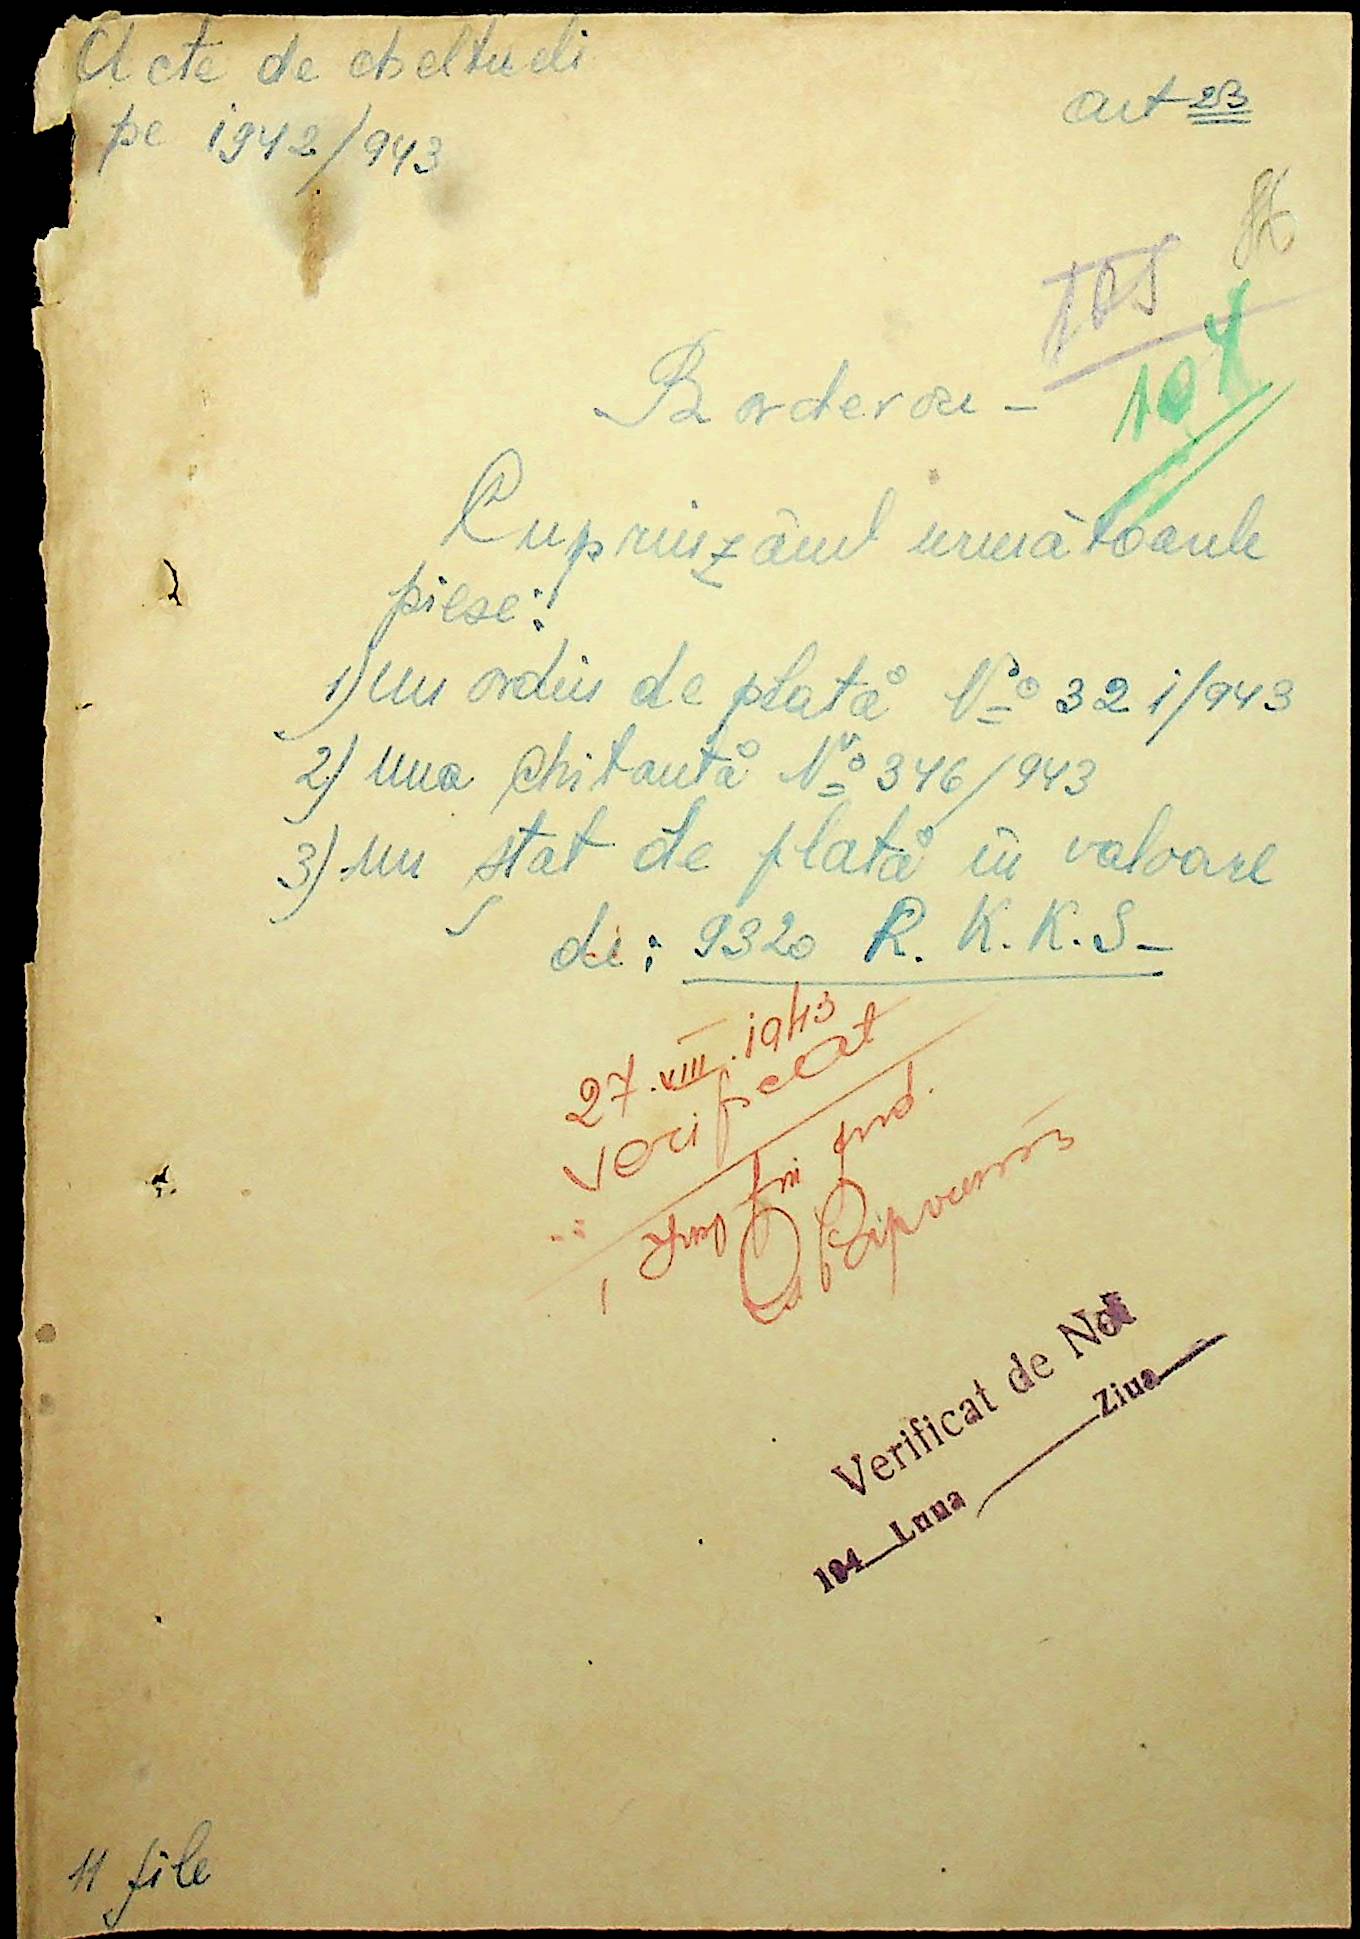 Acte de cheltueli
pe 1942/943
art 23
105
104
Borderou -
Cuprinzând următoarele
piese:
1) un ordin de plată No 321/943
2) una chitantă No 346/943
3) un stat de plată in valoare
de: 9320 R.K.K.S-
27.VIII.1943
Verificat
Verificat de Noi
194 Luna Ziua
11 file